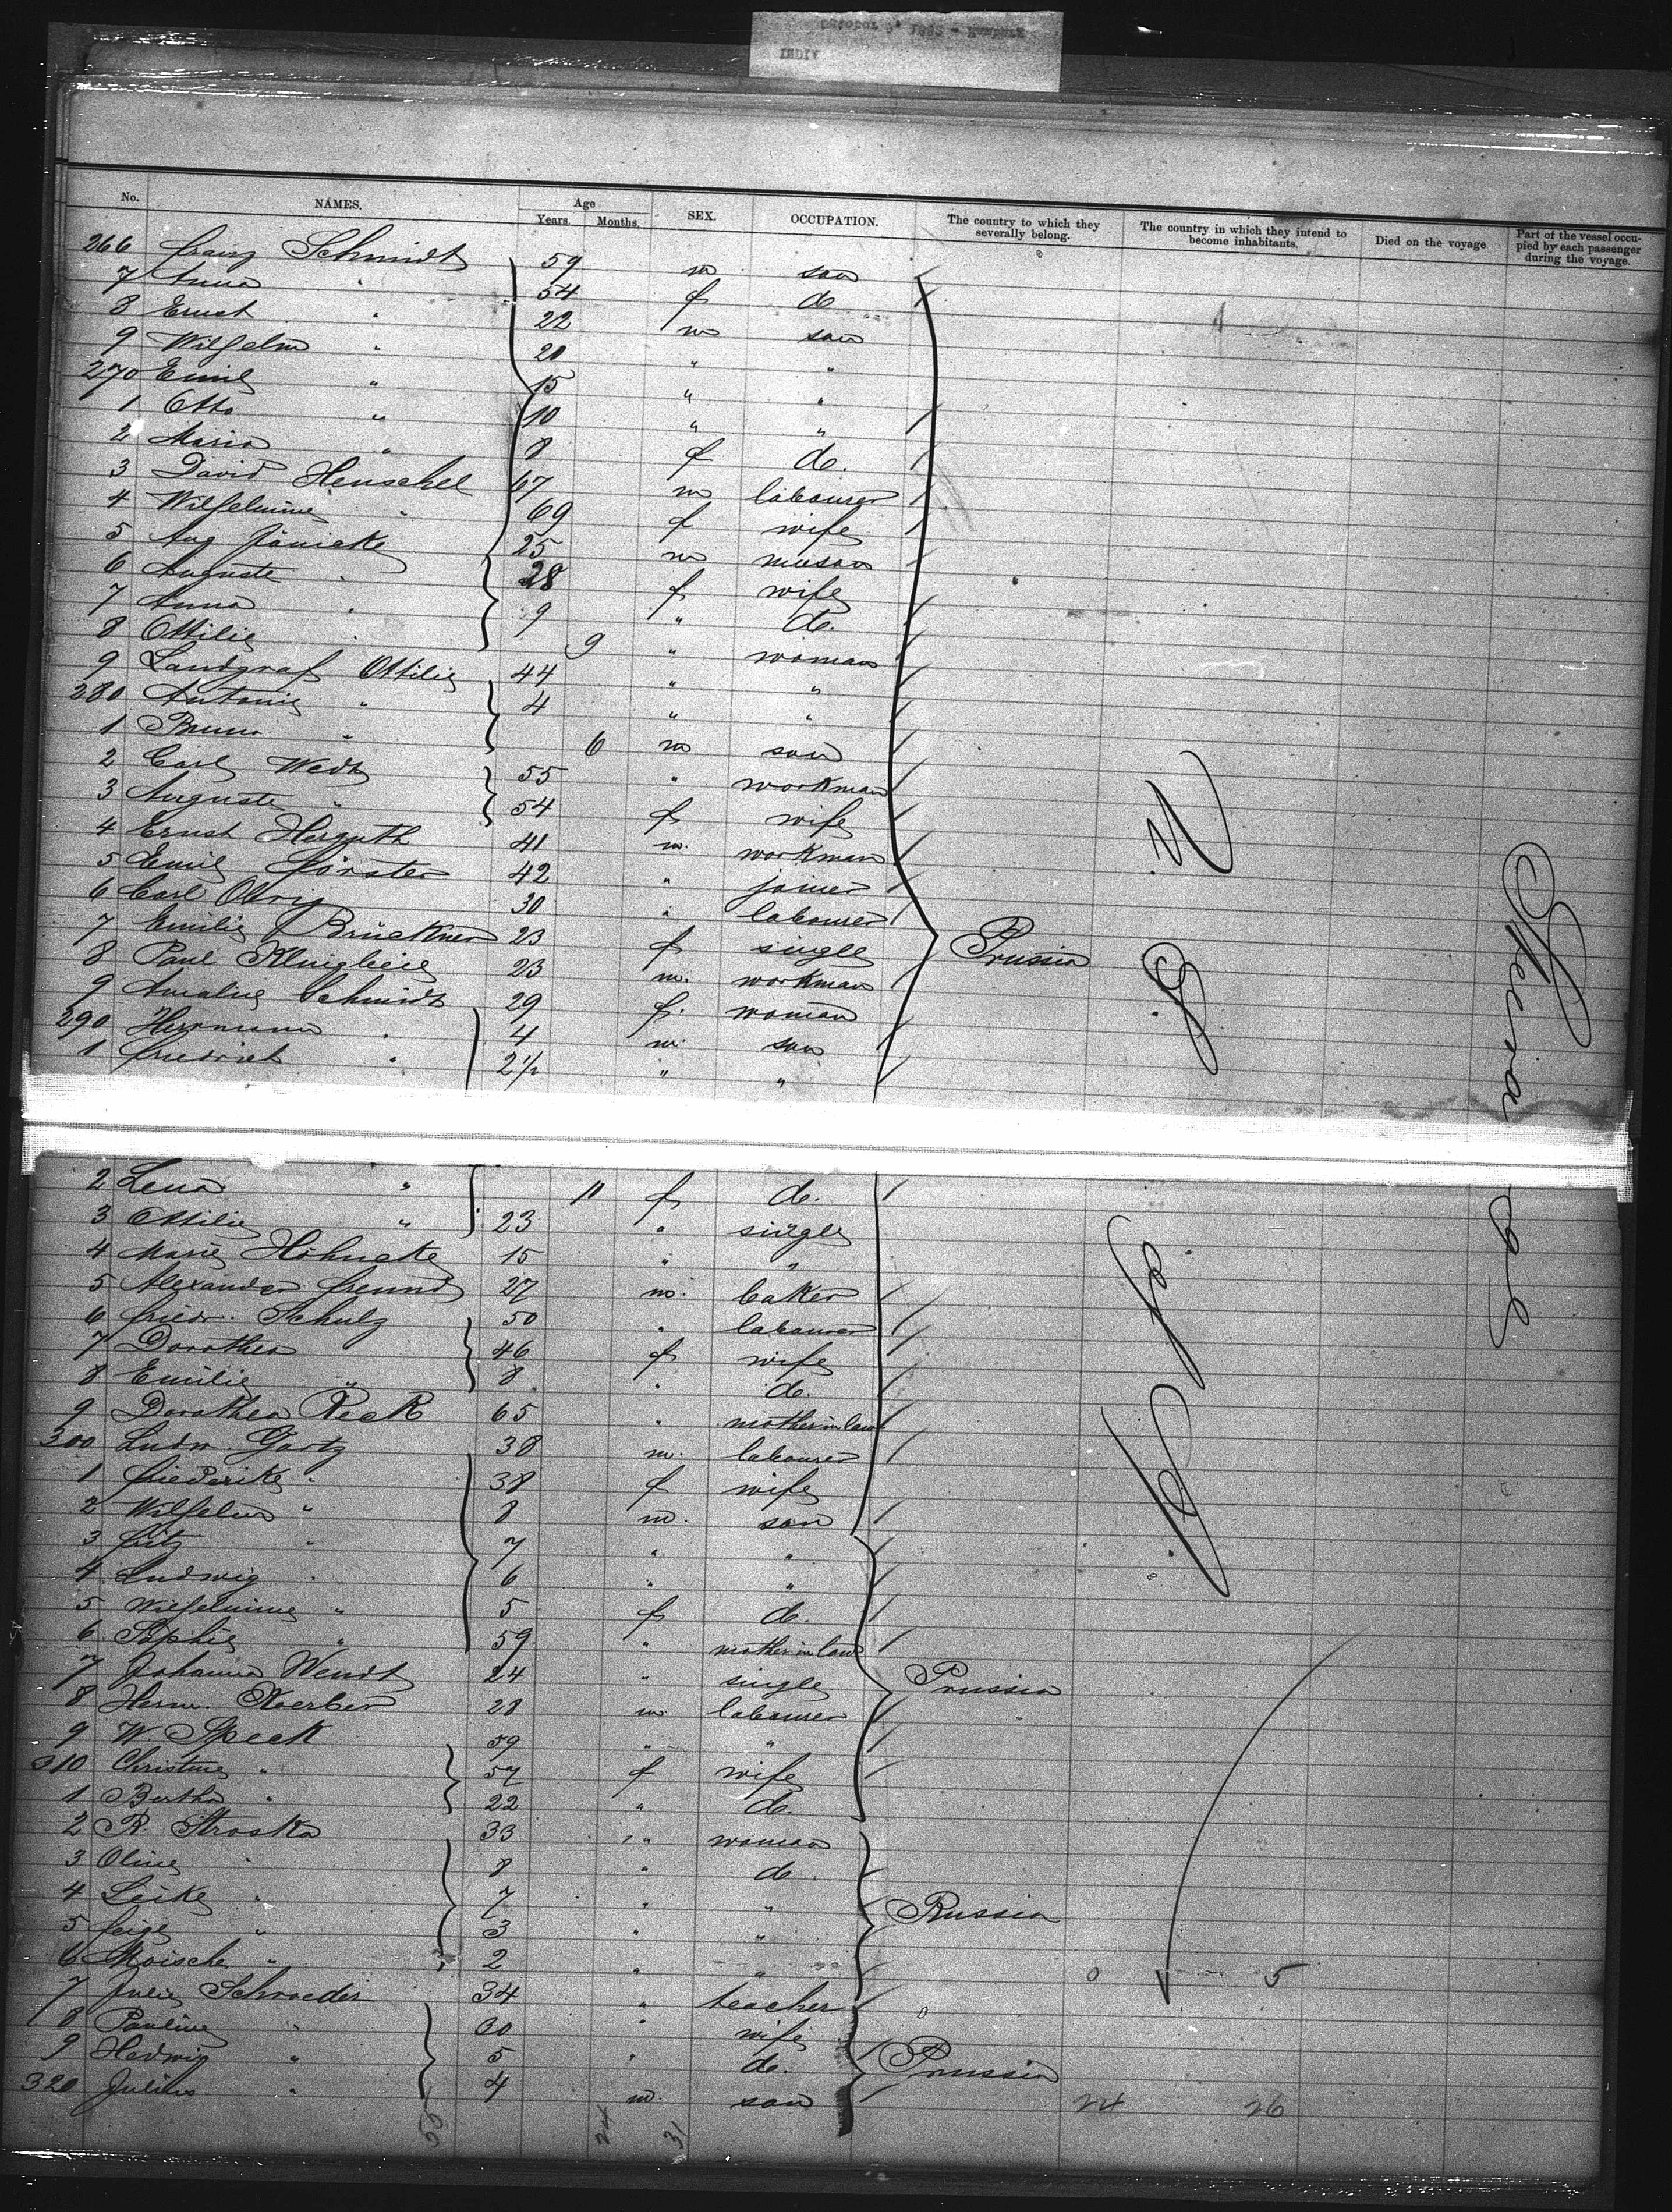 INDIV
No. NAMES. Age Years. Months. SEX. OCCUPATION. The country to which they severally belong. The country in which they intend to become inhabitants. Died on the voyage Part of the vessel occupied by each passenger during the voyage.
266 Franz Schmidt 59 m son
7 Anna " 54 f do
8 Ernst " 22 m son
9 Wilhelm " 20 " "
270 Emil " 15 " "
1 Otto " 10 " "
2 Maria " 8 f do.
3 David Henschel 67 m labourer
4 Wilhelmine " 69 f wife
5 Aug Jänicke 25 m mason
6 Auguste " 28 f wife
7 Anna " 9 " do.
8 Ottilie " 9 " woman
9 Landgraf Ottilie 44 " "
280 Antonie " 4 " "
1 Bruno " 6 m son
2 Carl Wedt 55 " workman
3 Auguste " 54 f wife
4 Ernst Herguth 41 m. workman
5 Emil Förster 42 " joiner
6 Carl 30 " labourer
7 Emilie Brückner 23 f single Prussia
8 Paul 23 m. workman
9 Amalie Schmidt 29 f. woman
290 Herrmann " 4 m. son
1 Friedrich " 2½ " "
2 Lena " 11 f do.
3 Ottilie " 23 " single
4 Marie Höhncke 15 " "
5 Alexander Freund 27 m. baker
6 Friedr. Schulz 50 " labourer
7 Dorothea 46 f wife
8 Emilie " 8 " do.
9 Dorothea Reck 65 " mother in law
300 Ludw. Gartz 38 m. labourer
1 Friederike " 38 f wife
2 Wilhelm " 8 m. son
3 Fritz " 7 " "
4 Ludwig " 6 " "
5 Wilhelmine " 5 f do.
6 Sophie " 59 " mother in law
7 Johanna Wendt 24 " single Prussia
8 Herm. Koerber 28 m. labourer
9 W. Speck 59 " "
310 Christine " 57 f wife
1 Bertha " 22 " do.
2 R. Stroska 33 " woman
3 Oline " 8 " do
4 Leike " 7 " " Russia
5 Feige " 3 " "
6 Moische " 2 " " 0 5
7 Julis Schroeder 34 " teacher 0
8 Pauline " 30 " wife
9 Hedwig " 5 " do. Prussia
320 Julius " 4 m. son 24 26
55 24 31
U. S. of A.
Steerage